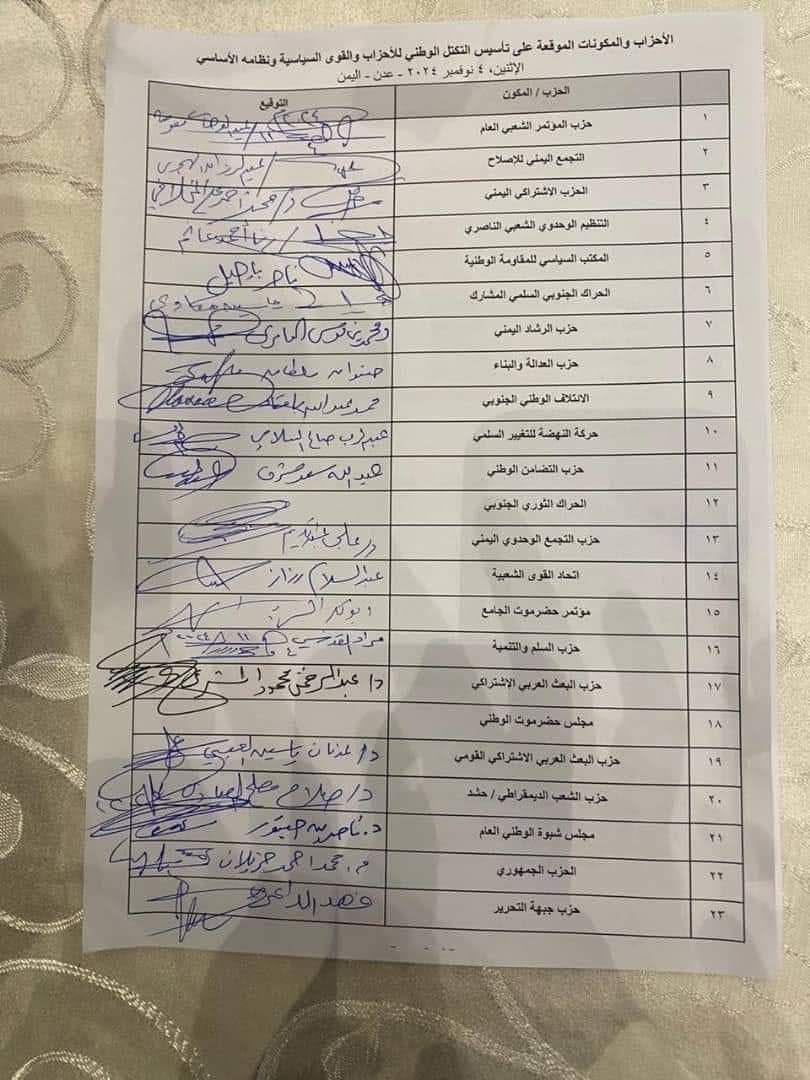 الأحزاب والمكونات الموقعة على تأسيس التكتل الوطني للأحزاب والقوى السياسية ونظامه الأساسي
الإثنين، ٤ نوفمبر ٢٠٢٤ - عدن - اليمن
الحزب / المكون التوقيع
١ حزب المؤتمر الشعبي العام
٢ التجمع اليمني للإصلاح عبدالرزاق الهجري
٣ الحزب الاشتراكي اليمني د/ محمد احمد علي المخلافي
٤ التنظيم الوحدوي الشعبي الناصري
٥ المكتب السياسي للمقاومة الوطنية ناصر باجيل
٦ الحراك الجنوبي السلمي المشارك
٧ حزب الرشاد اليمني د محمد بن موسى العامري
٨ حزب العدالة والبناء سلطان
٩ الائتلاف الوطني الجنوبي محمد عبدالله
١٠ حركة النهضة للتغيير السلمي عبدالرب صالح السلامي
١١ حزب التضامن الوطني عبدالله سعد
١٢ الحراك الثوري الجنوبي
١٣ حزب التجمع الوحدوي اليمني د. علي عبدالكريم
١٤ اتحاد القوى الشعبية عبدالسلام رزاز
١٥ مؤتمر حضرموت الجامع
١٦ حزب السلم والتنمية مراد القدسي
١٧ حزب البعث العربي الإشتراكي د/ عبدالرحمن محمود
١٨ مجلس حضرموت الوطني
١٩ حزب البعث العربي الاشتراكي القومي د/ عدنان ياسين
٢٠ حزب الشعب الديمقراطي / حشد د/ صلاح
٢١ مجلس شبوة الوطني العام د. ناصر
٢٢ الحزب الجمهوري م. محمد احمد جزيلان
٢٣ حزب جبهة التحرير فهد